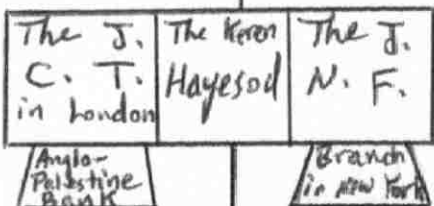 The J.
C. T.
in London
The Keren
Hayesod
The J.
N. F.
Anglo-
Palestine
Bank
Branch
in New York